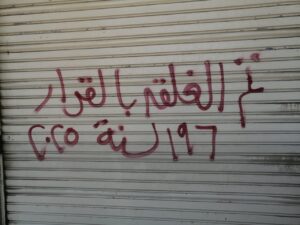 تم الغلقه بالقرار
١٩٦ لسنة ٢٠٢٥